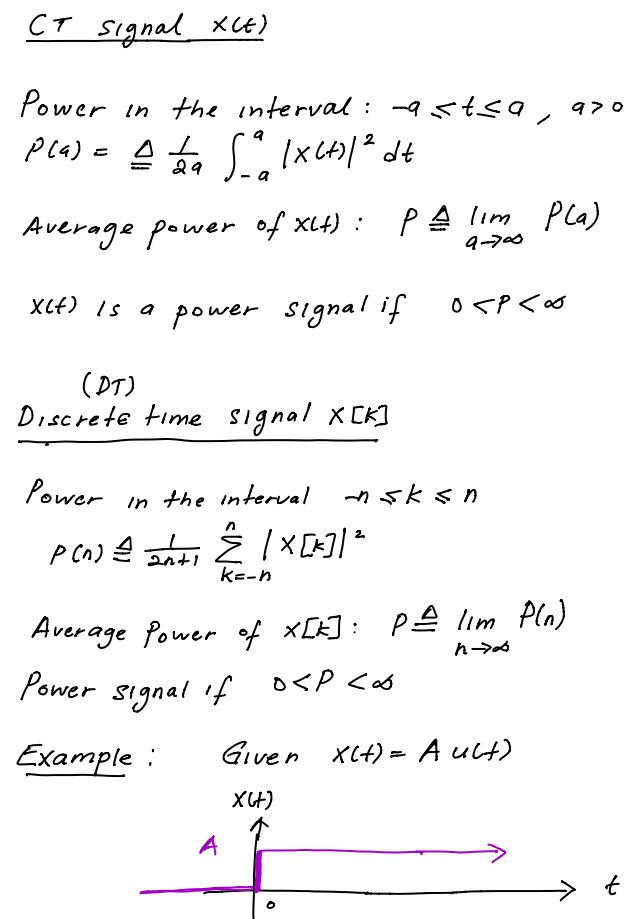 CT signal x(t)
Power in the interval: -a ≤ t ≤ a, a>0
P(a) = ≜ 1/2a ∫_{-a}^{a} |x(t)|² dt
Average power of x(t): P ≜ lim_{a→∞} P(a)
x(t) is a power signal if 0<P<∞
(DT)
Discrete time signal x[k]
Power in the interval -n ≤ k ≤ n
P(n) ≜ 1/2n+1 ∑_{k=-n}^{n} |x[k]|²
Average Power of x[k]: P ≜ lim_{n→∞} P(n)
Power signal if 0<P<∞
Example: Given x(t) = A u(t)
x(t)
A
t
0